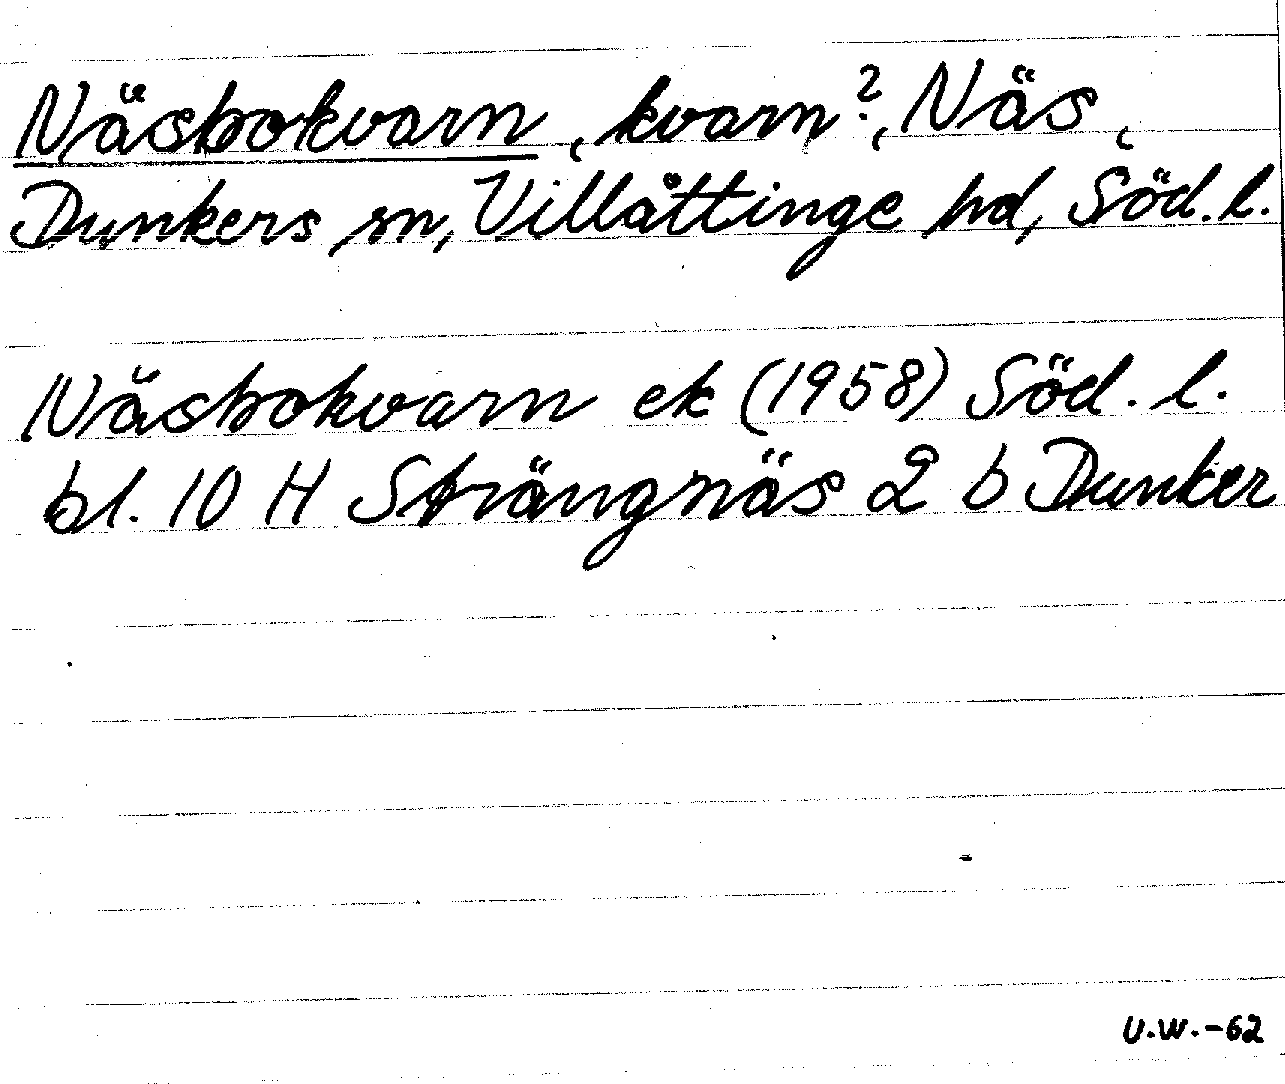 Näsbokvarn, kvarn?, Näs,
Dunkers sn, Villåttinge hd, Söd. l.
Näsbokvarn ek (1958) Söd. l.
bl. 10 H Strängnäs 2 b Dunker
U.W.-62